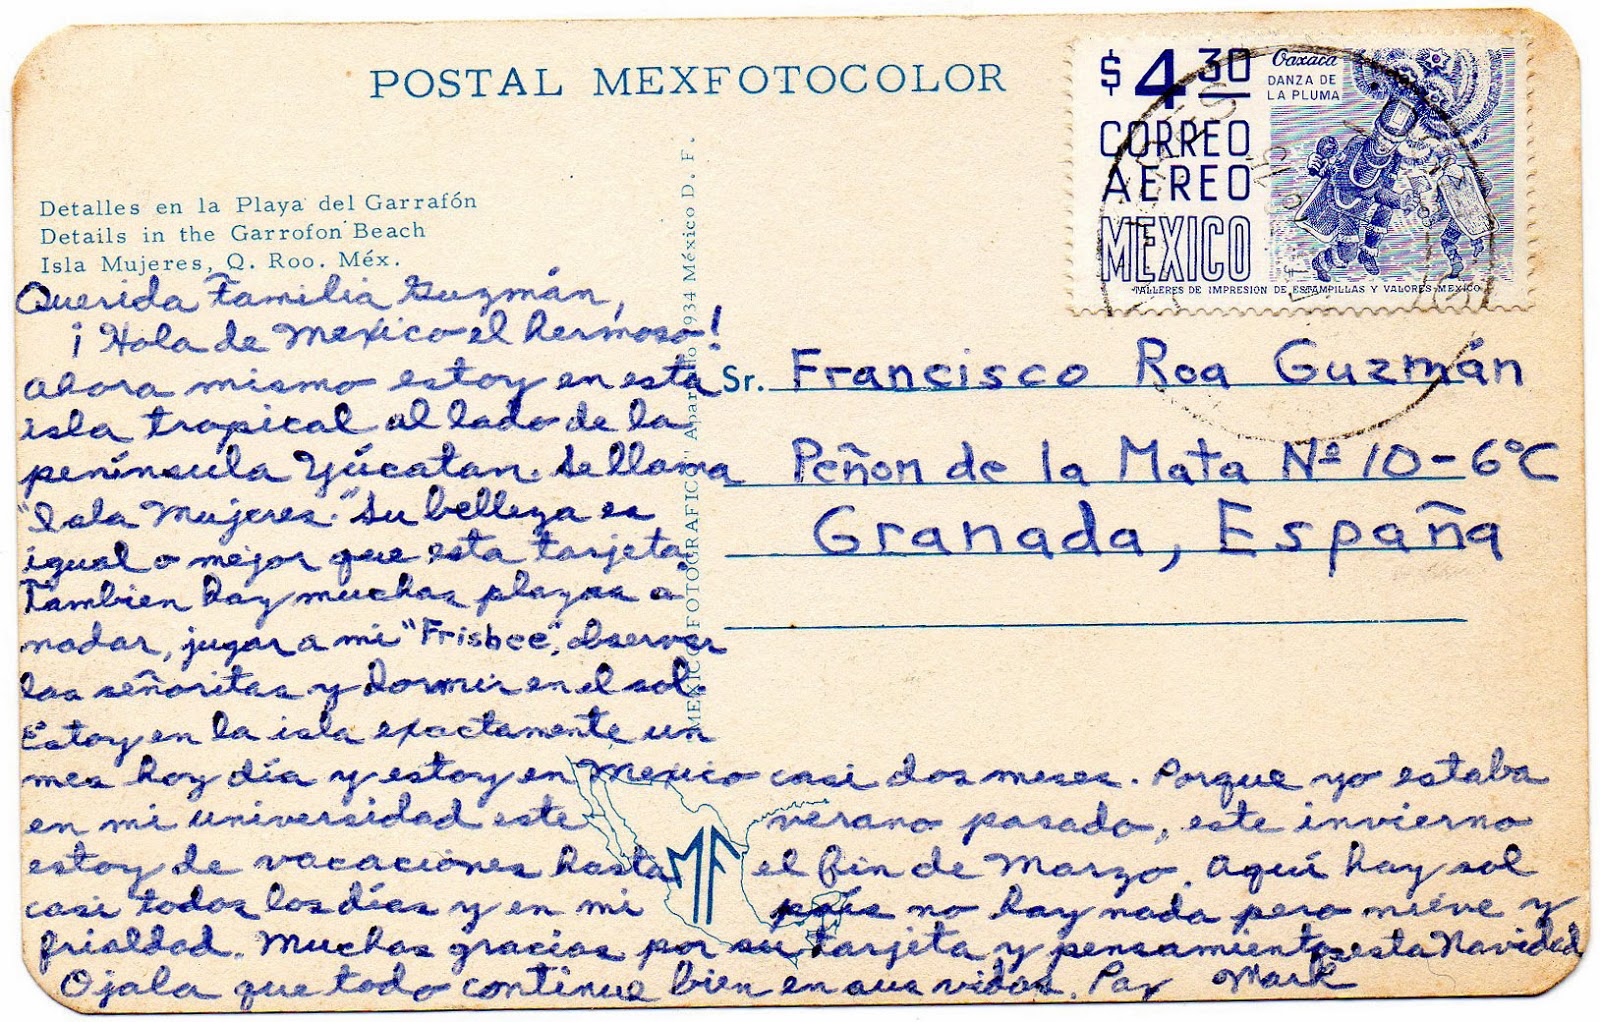 POSTAL MEXFOTOCOLOR
$4.30
Oaxaca
DANZA DE
LA PLUMA
CORREO
AEREO
MEXICO
TALLERES DE IMPRESION DE ESTAMPILLAS Y VALORES-MEXICO
Detalles en la Playa del Garrafón
Details in the Garrofon Beach
Isla Mujeres, Q. Roo. Méx.
Querida Familia Guzmán,
¡Hola de Mexico el hermoso!
Ahora mismo estoy en esta
isla tropical al lado de la
península Yúcatan. Se llama
"Isla Mujeres." Su belleza es
igual o mejor que esta tarjeta.
Tambien hay muchas playas a
nadar, jugar a mi "Frisbee", observar
las señoritas y dormir en el sol.
Estoy en la isla exactamente un
mes hoy día y estoy en Mexico casi dos meses. Porque yo estaba
en mi universidad este verano pasado, este invierno
estoy de vacaciones hasta el fin de Marzo. Aquí hay sol
casi todos los días y en mi país no hay nada pero nieve y
frialdad. Muchas gracias por su tarjeta y pensamientos esta Navidad
Ojala que todo continue bien en sus vidas. Paz Mark
MEXICO FOTOGRAFICO" Apartado 1934 México D. F.
Sr. Francisco Roa Guzmán
Peñon de la Mata Nº 10-6ºC
Granada, España
MF